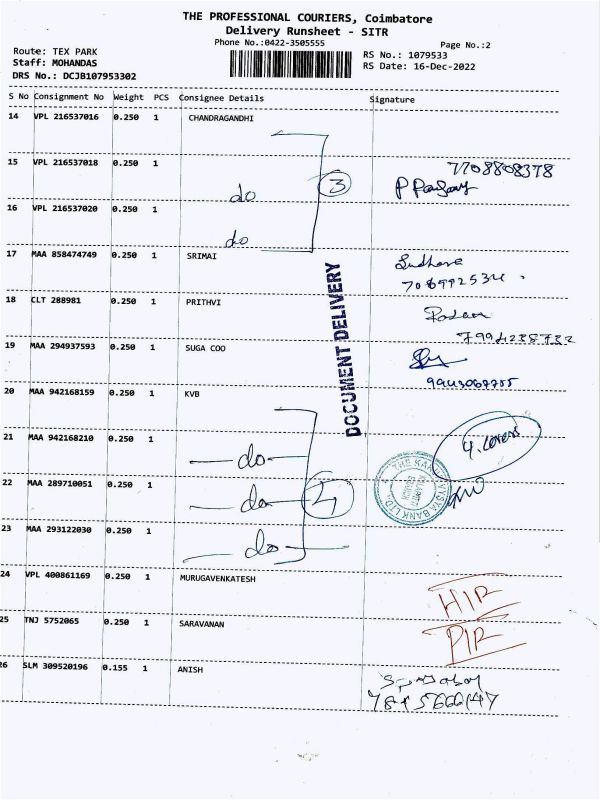 THE PROFESSIONAL COURIERS, Coimbatore
Delivery Runsheet - SITR
Phone No.:0422-3505555
Page No.:2
Route: TEX PARK
Staff: MOHANDAS
DRS No.: DCJB107953302
RS No.: 1079533
RS Date: 16-Dec-2022
S No Consignment No Weight PCS Consignee Details Signature
14 VPL 216537016 0.250 1 CHANDRAGANDHI
15 VPL 216537018 0.250 1 do 3 7708808378
16 VPL 216537020 0.250 1 do
17 MAA 858474749 0.250 1 SRIMAI
18 CLT 288981 0.250 1 PRITHVI
19 MAA 294937593 0.250 1 SUGA COO
DOCUMENT DELIVERY
20 MAA 942168159 0.250 1 KVB
21 MAA 942168210 0.250 1 do 4. covers
22 MAA 289710051 0.250 1 do 4
23 MAA 293122030 0.250 1 do
24 VPL 400861169 0.250 1 MURUGAVENKATESH HIR
25 TNJ 5752065 0.250 1 SARAVANAN PIR
26 SLM 309520196 0.155 1 ANISH